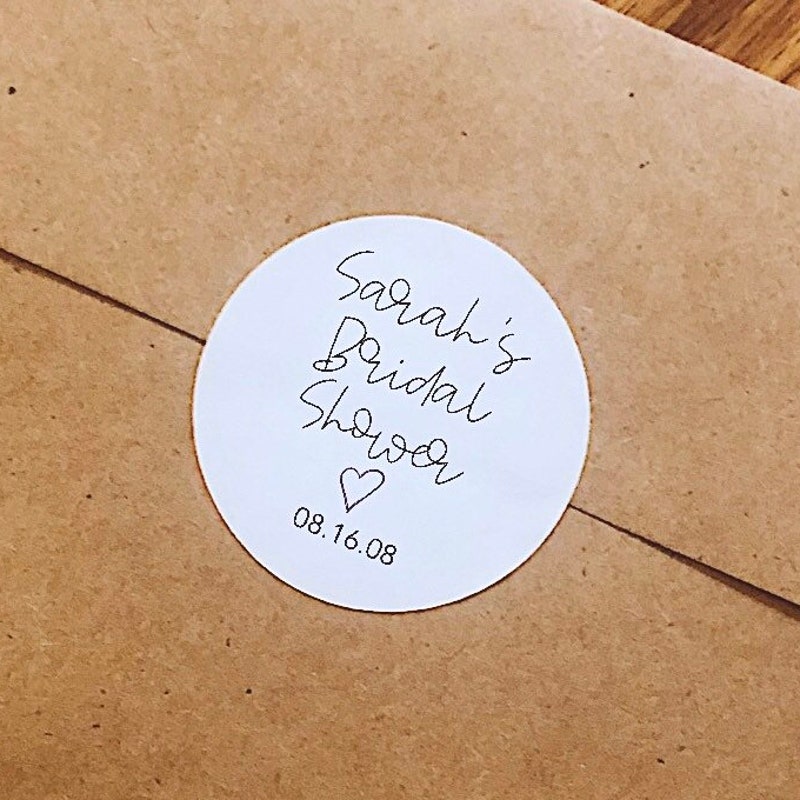 Sarah's
Bridal
Shower
08.16.08